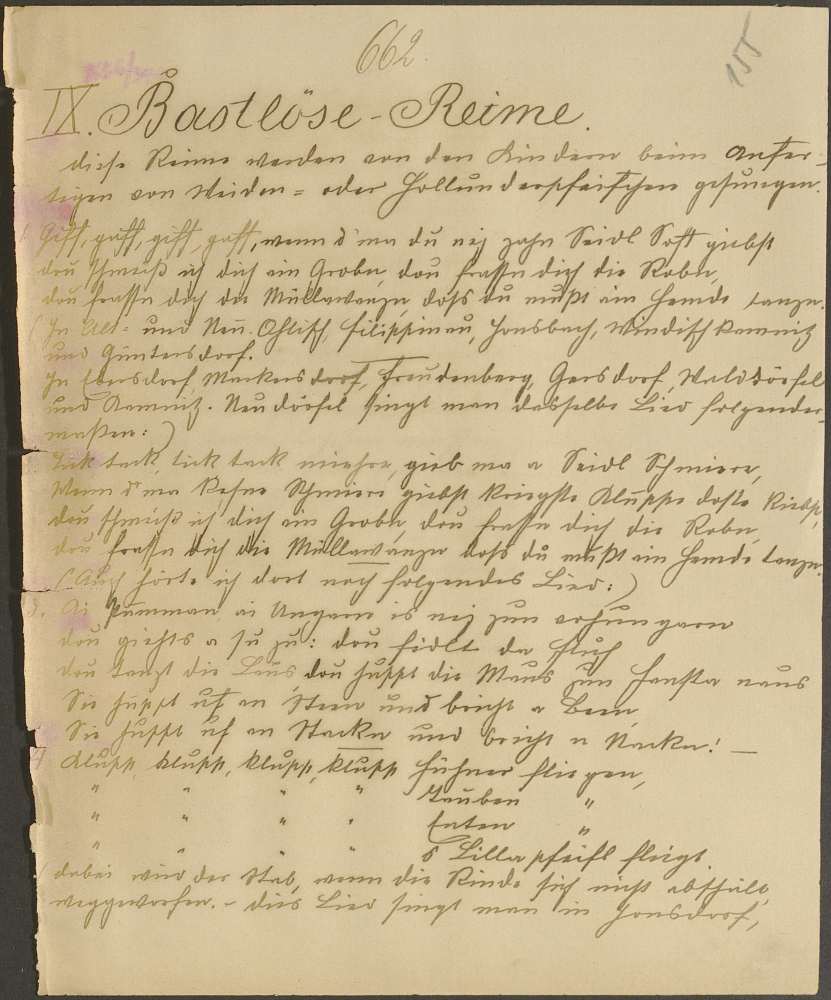 662.
155
IX. Bastlöse-Reime.
diese Reime werden von den Kindern beim Anfer-
tigen von Weiden- oder Hollunderpfeifchen gesungen.
1. Giff, gaff, giff, gaff, wenn d' ma du nej zahn Seidl Soft giebst
dou schmeiß ich dich ein Grobn, dou frassn dich die Robn,
dou frassn dich die Müllawanzn, doß du mußt im Hemde tanzn.
(In Alt- und Neu-Ohlisch, Filippinau, Jonsbach, Windischkamnitz
und Güntersdorf.
In Ebersdorf, Markersdorf, Freudenberg, Gersdorf, Walddörfel
und Kamnitz-Neudörfel singt man dasselbe Lied folgender-
maßen:)
Tick tack, tick tack, gieb ma a Seidl Schmiere,
Wenn d' ma kesne Schmiere giebst kriegste Kluppe doste kiebst,
dou schmeiß ich dich ein Grobn, dou frassn dich die Robn,
dou frassn dich die Müllawanzn doß du mußt im Hemde tanzn.
(Auch hörte ich dort noch folgendes Lied:)
3. Ai Pumman ai Ungarn is nej zun erhungarn
dou giehts a su zu: dou fidlt da Fluch
dou tanzt die Laus, dou huppt die Maus zun Fansta naus
Sie huppt uf en Steen und bricht a Been,
Sie huppt uf en Stackn und bricht n Nackn! —
4) Klupp, klupp, klupp, klupp Hühner fliegen,
" " " " Tauben "
" " " " Enten "
" " " " 's Lillapfeifl fliegt.
(dabei wird der Stab, wenn die Rinde sich nicht abschält,
weggeworfen. - dies Lied singt man in Jonsdorf,